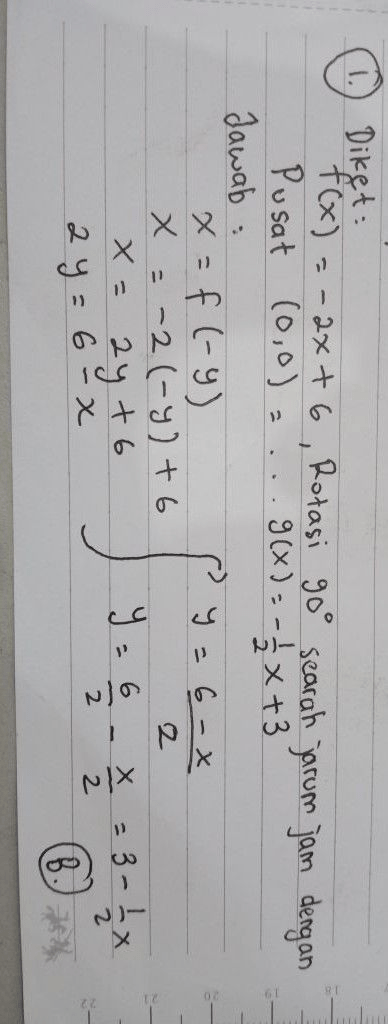 1. Diket:
f(x) = -2x + 6, Rotasi 90° searah jarum jam dengan
Pusat (0,0) = ... g(x) = -1/2 x + 3
Jawab:
x = f(-y)
x = -2(-y) + 6
x = 2y + 6
2y = 6 - x
y = (6 - x)/2
y = 6/2 - x/2 = 3 - 1/2 x
B.
19 18
22 21 20